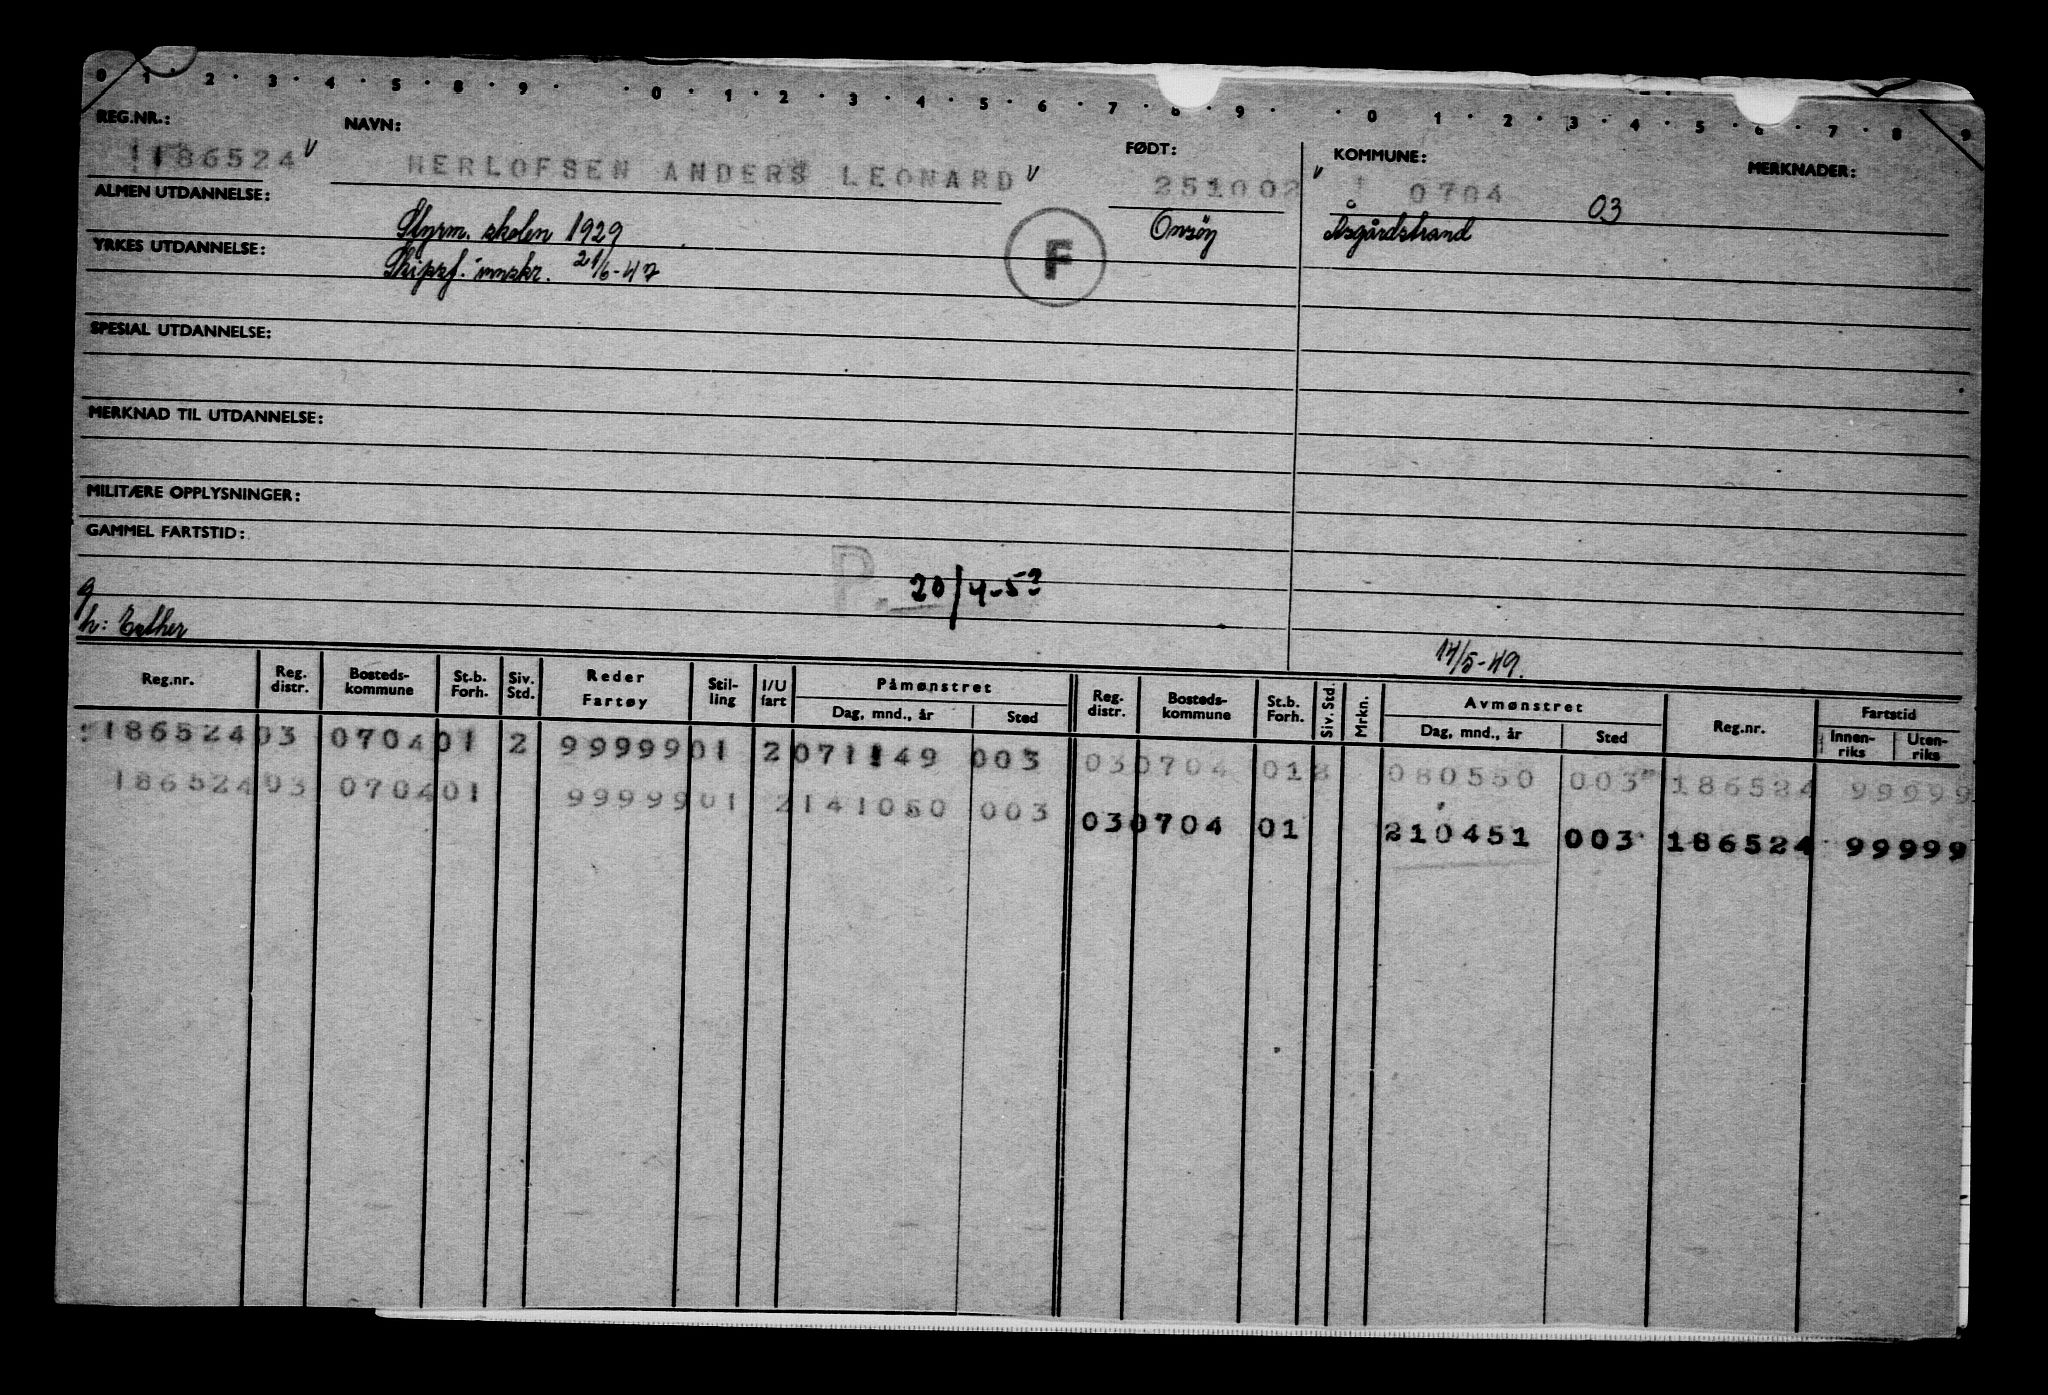 0 · 1 · 2 · 3 · 4 · 5 · 8 · 9 · · 0 · 1 · 2 · 3 · 4 · 5 · 6 · 7 · 8 · 9 · · 0 · 1 · 2 · 3 · 4 · 5 · 6 · 7 · 8 · 9
REG.NR.: NAVN: FØDT: KOMMUNE: MERKNADER:
186524 v HERLOFSEN ANDERS LEONARD v 251002 v 0704 03
ALMEN UTDANNELSE: Styrm. skolen 1929 F Onsöy Åsgårdstrand
YRKES UTDANNELSE: Skipsf. innskr. 21/6-47
SPESIAL UTDANNELSE:
MERKNAD TIL UTDANNELSE:
MILITÆRE OPPLYSNINGER:
GAMMEL FARTSTID:
P. 20/4-53
g
h: Esther
14/5-49.
Reg.nr. Reg. distr. Bosteds-kommune St.b. Forh. Siv. Std. Reder Fartøy Stil-ling I/U fart Påmønstret Dag, mnd., år Sted Reg. distr. Bosteds-kommune St.b. Forh. Siv. Std. Mrkn. Avmønstret Dag, mnd., år Sted Reg.nr. Fartstid Innen-riks Uten-riks
186524 03 0704 01 2 99999 01 2 071149 003 03 0704 01 8 080550 003 186524 99999
186524 03 0704 01 99999 01 2 141050 003 03 0704 01 210451 003 186524 99999